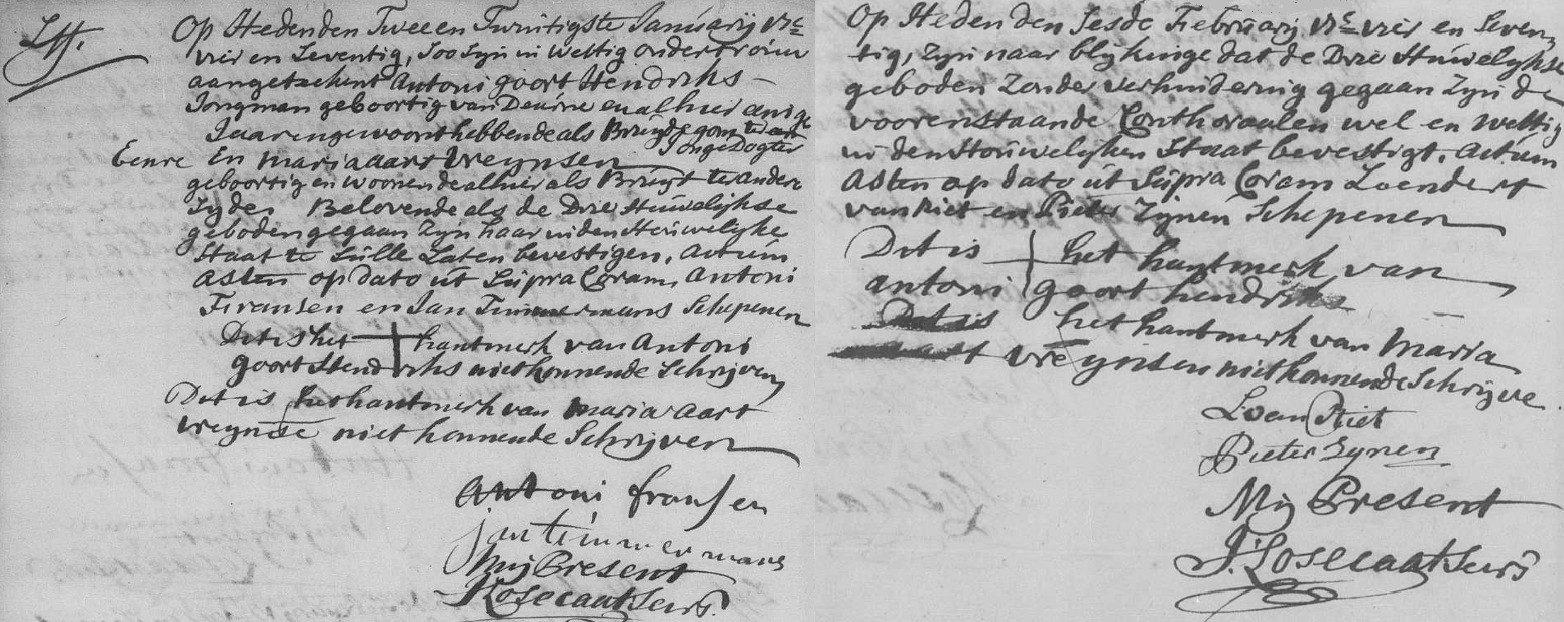 Op Heden den Twee en Twintigste Januarij 17c
vier en Seventig, Soo Syn in Wettig ondertrouw
aangetekent Antoni goort Hendriks
Jongman geboortig van Deurne en alhier enige
Jaaren gewoont hebbende als Bruydegom te een
Jonge Dogter
Eenre En maria aart Vreynsen
geboortig en woonende alhier als Bruyt te andere
Zyde. Belovende als de Drie Huwelijkse
geboden gegaan Zyn haar in den Houwelijke
Staat te Sulle Laten bevestigen. Actum
Asten op dato ut Supra Coram, Antoni
Fransen en Jan Timmermans Schepenen
Dit is het hantmerk van Antoni
goort Hendriks niet konnende Schrijven
Dit is het hantmerk van maria aart
Vreynse niet konnende Schrijven
Antoni fransen
jan timmermans
Mij Present
J. Losecaat Secrs.
Op Heden den Sesde Februarij 17c vier en Seven
tig, Zyn naar blijkinge dat de Drie Huwelijkse
geboden Zonder verhindering gegaan Zyn de
voorenstaande Conthoraalen wel en Wettig
in den Houwelyken Staat bevestigt. Actum
Asten op dato ut Supra Coram Leendert
van Riet en Pieter Zynen Schepenen
Dit is het hantmerk van
antoni goort hendriks
Dit is het hantmerk van Maria
aart Vreynsen niet konnende Schrijve
L van Riet
Pieter Zynen
Mij Present
J. Losecaat Secrs